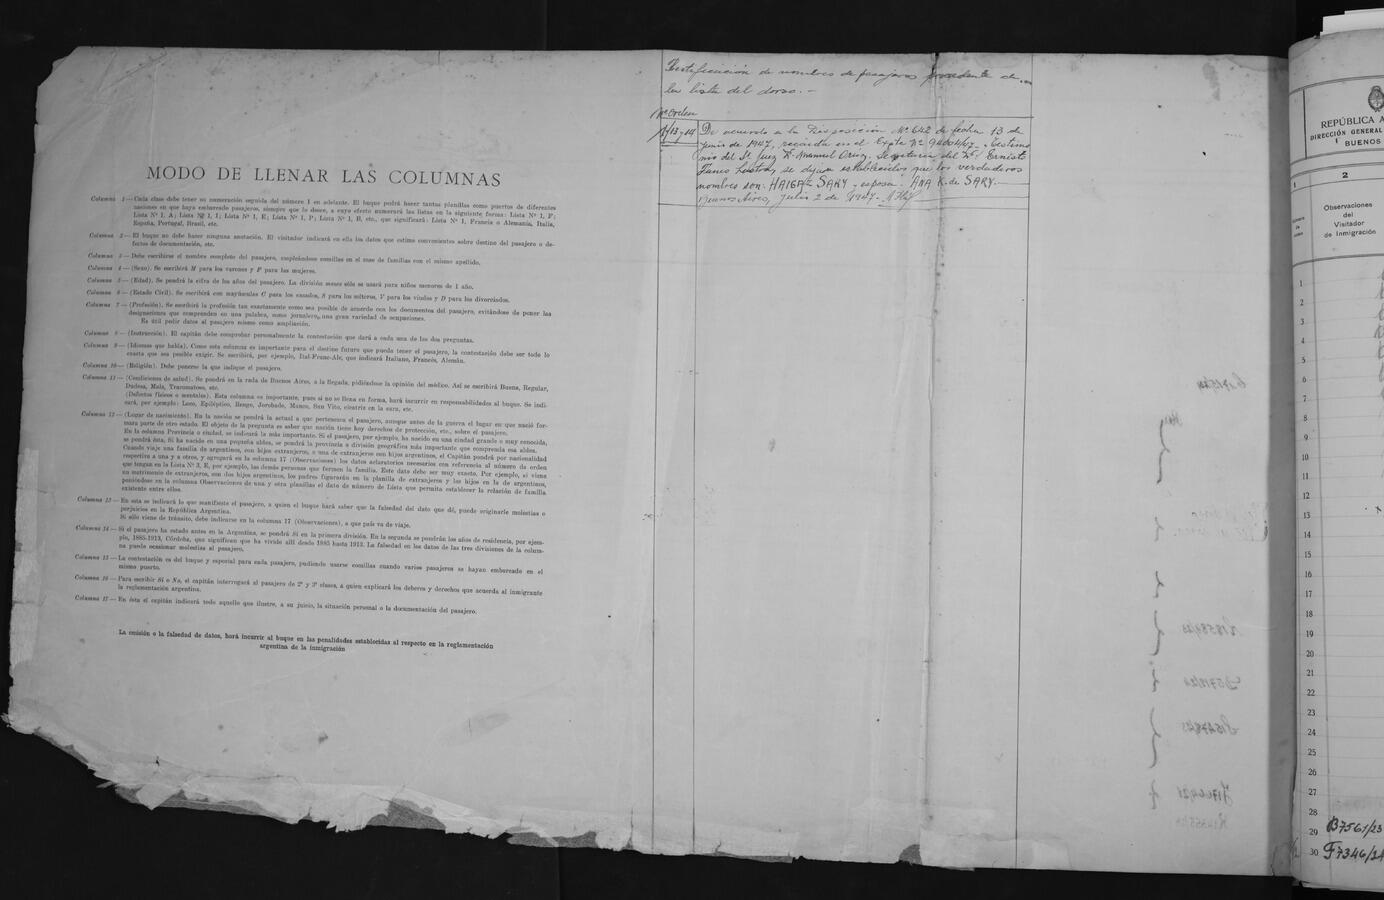 MODO DE LLENAR LAS COLUMNAS
Columna 1 — Cada clase debe tener su numeración seguida del número 1 en adelante. El buque podrá hacer tantas planillas como puertos de diferentes
naciones en que haya embarcado pasajeros, siempre que lo desee, a cuyo efecto numerará las listas en la siguiente forma: Lista Nº 1, F;
Lista Nº 1, A; Lista Nº 1, I; Lista Nº 1, E; Lista Nº 1, P; Lista Nº 1, B, etc., que significará: Lista Nº 1, Francia o Alemania, Italia,
España, Portugal, Brasil, etc.
Columna 2 — El buque no debe hacer ninguna anotación. El visitador indicará en ella los datos que estime convenientes sobre destino del pasajero o de-
fectos de documentación, etc.
Columna 3 — Debe escribirse el nombre completo del pasajero, empleándose comillas en el caso de familias con el mismo apellido.
Columna 4 — (Sexo). Se escribirá M para los varones y F para las mujeres.
Columna 5 — (Edad). Se pondrá la cifra de los años del pasajero. La división meses sólo se usará para niños menores de 1 año.
Columna 6 — (Estado Civil). Se escribirá con mayúsculas C para los casados, S para los solteros, V para los viudos y D para los divorciados.
Columna 7 — (Profesión). Se escribirá la profesión tan exactamente como sea posible de acuerdo con los documentos del pasajero, evitándose de poner las
designaciones que comprenden en una palabra, como jornalero, una gran variedad de ocupaciones.
Es útil pedir datos al pasajero mismo como ampliación.
Columna 8 — (Instrucción). El capitán debe comprobar personalmente la contestación que dará a cada una de las dos preguntas.
Columna 9 — (Idiomas que habla). Como esta columna es importante para el destino futuro que pueda tener el pasajero, la contestación debe ser todo lo
exacta que sea posible exigir. Se escribirá, por ejemplo, Ital-Franc-Ale, que indicará Italiano, Francés, Alemán.
Columna 10 — (Religión). Debe ponerse la que indique el pasajero.
Columna 11 — (Condiciones de salud). Se pondrá en la rada de Buenos Aires, a la llegada, pidiéndose la opinión del médico. Así se escribirá Buena, Regular,
Dudosa, Mala, Tracomatoso, etc.
(Defectos físicos o mentales). Esta columna es importante, pues si no se llena en forma, hará incurrir en responsabilidades al buque. Se indi-
cará, por ejemplo: Loco, Epiléptico, Rengo, Jorobado, Manco, San Vito, cicatriz en la cara, etc.
Columna 12 — (Lugar de nacimiento). En la nación se pondrá la actual a que pertenezca el pasajero, aunque antes de la guerra el lugar en que nació for-
mara parte de otro estado. El objeto de la pregunta es saber que nación tiene hoy derechos de protección, etc., sobre el pasajero.
En la columna Provincia o ciudad, se indicará la más importante. Si el pasajero, por ejemplo, ha nacido en una ciudad grande o muy conocida,
se pondrá ésta. Si ha nacido en una pequeña aldea, se pondrá la provincia o división geográfica más importante que comprenda esa aldea.
Cuando viaje una familia de argentinos, con hijos extranjeros, o una de extranjeros con hijos argentinos, el Capitán pondrá por nacionalidad
respectiva a una y a otros, y agregará en la columna 17 (Observaciones) los datos aclaratorios necesarios con referencia al número de orden
que tengan en la Lista Nº 3, E, por ejemplo, las demás personas que formen la familia. Este dato debe ser muy exacto. Por ejemplo, si viene
un matrimonio de extranjeros, con dos hijos argentinos, los padres figurarán en la planilla de extranjeros y los hijos en la de argentinos,
poniéndose en la columna Observaciones de una y otra planillas el dato de número de Lista que permita establecer la relación de familia
existente entre ellos.
Columna 13 — En esta se indicará lo que manifieste el pasajero, a quien el buque hará saber que la falsedad del dato que dé, puede originarle molestias o
perjuicios en la República Argentina.
Si sólo viene de tránsito, debe indicarse en la columna 17 (Observaciones), a que país va de viaje.
Columna 14 — Si el pasajero ha estado antes en la Argentina, se pondrá Sí en la primera división. En la segunda se pondrán los años de residencia, por ejem-
plo, 1885-1913, Córdoba, que significan que ha vivido allí desde 1885 hasta 1913. La falsedad en los datos de las tres divisiones de la colum-
na puede ocasionar molestias al pasajero.
Columna 15 — La contestación es del buque y especial para cada pasajero, pudiendo usarse comillas cuando varios pasajeros se hayan embarcado en el
mismo puerto.
Columna 16 — Para escribir Sí o No, el capitán interrogará al pasajero de 2ª y 3ª clases, a quien explicará los deberes y derechos que acuerda al inmigrante
la reglamentación argentina.
Columna 17 — En ésta el capitán indicará todo aquello que ilustre, a su juicio, la situación personal o la documentación del pasajero.
La omisión o la falsedad de datos, hará incurrir al buque en las penalidades establecidas al respecto en la reglamentación
argentina de la inmigración
Rectificación de nombres de pasajeros procedente de
la lista del dorso.-
Nº Orden
13 y 14 De acuerdo a la Disposición Nº 642 de fecha 13 de
junio de 1947, recaída en el Expte Nº 94004/47. Testimo
nio del Sr. Juez Dr. Manuel Orus, Secretaría del Dr. Ernesto
Funes Lastra, se dejan establecidos que los verdaderos
nombres son: HAIGAZ SARY y esposa: ANA K. de SARY.
Buenos Aires, Julio 2 de 1947.
REPÚBLICA A
DIRECCIÓN GENERAL
BUENOS
1
2
Observaciones
del
Visitador
de Inmigración
1
2
3
4
5
6
7
8
9
10
11
12
13
14
15
16
17
18
19
20
21
22
23
24
25
26
27
28
29 B7561/23
30 F7346/24